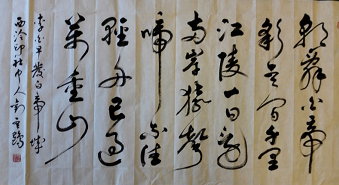 朝辭白帝
彩雲間千里
江陵一日還
兩岸猿聲
啼不住
輕舟已過
萬重山
李白早發白帝城
西泠印社中人